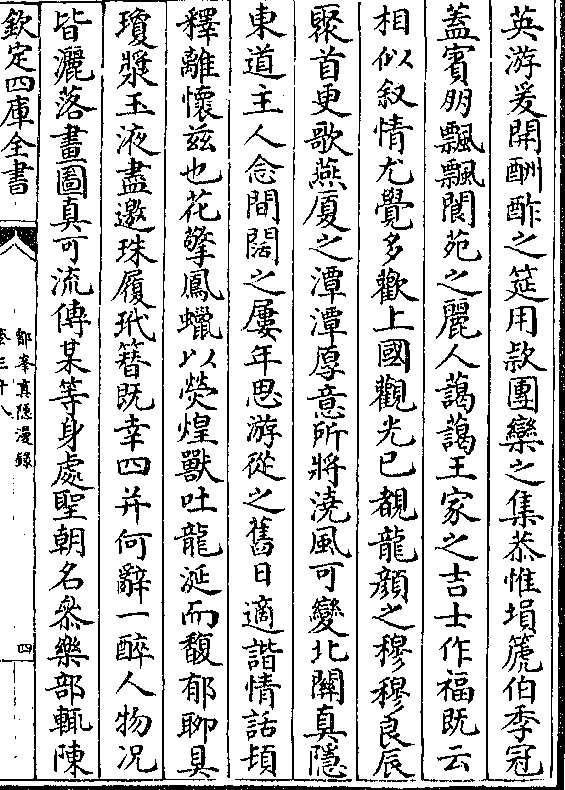 英游爰開酬酢之筵用款團欒之集恭惟塤篪伯季冠
蓋賓朋飄飄閬苑之麗人藹藹王家之吉士作福既云
相似叙情尤覺多歡上國觀光已覩龍顔之穆穆良辰
聚首更歌燕厦之潭潭厚意所將澆風可變北闗真隱
東道主人念間闊之屢年思游從之舊日適諧情話頓
釋離懷兹也花擎鳳蠟以熒煌獸吐龍涎而馥郁聊具
瓊漿玉液盡邀珠履玳簪既幸四并何辭一醉人物况
皆灑落畫圖真可流傳某等身處聖朝名叅樂部輒陳
欽定四庫全書
鄮峯真隱漫録
卷三十八
四